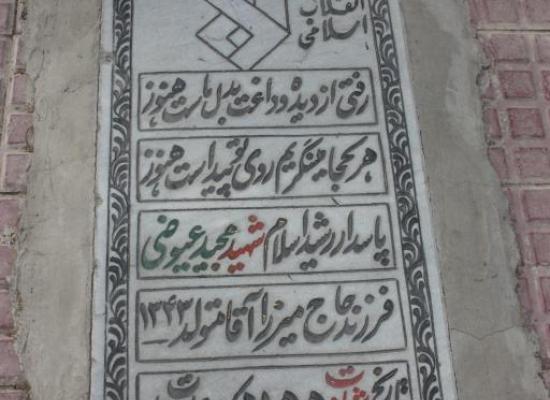 انقلاب
اسلامی
رفتی از دیده و داغت بدل ماست هنوز
هر کجا مینگریم روی تو پیداست هنوز
پاسدار رشید اسلام شهید مجید عیوضی
فرزند حاج میرزا آقا متولد ۱۳۴۳
تاریخ شهادت